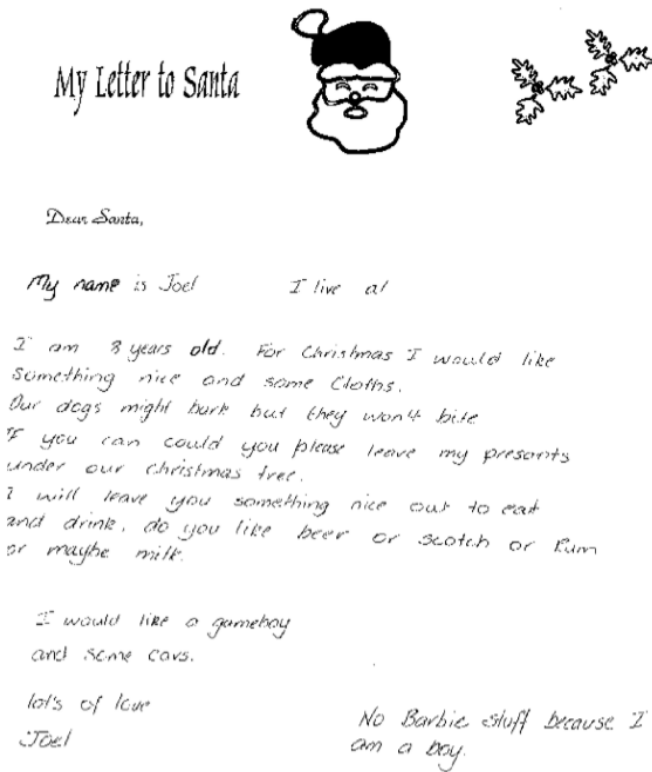 My Letter to Santa
Dear Santa,
My name is Joel I live at
I am 8 years old. For Christmas I would like
something nice and some Cloths.
Our dogs might bark but they won't bite
If you can could you please leave my presants
under our christmas tree.
I will leave you something nice out to eat
and drink, do you like beer or scotch or Rum
or maybe milk.
I would like a gameboy
and some cars.
lot's of love
Joel
No Barbie stuff because I
am a boy.